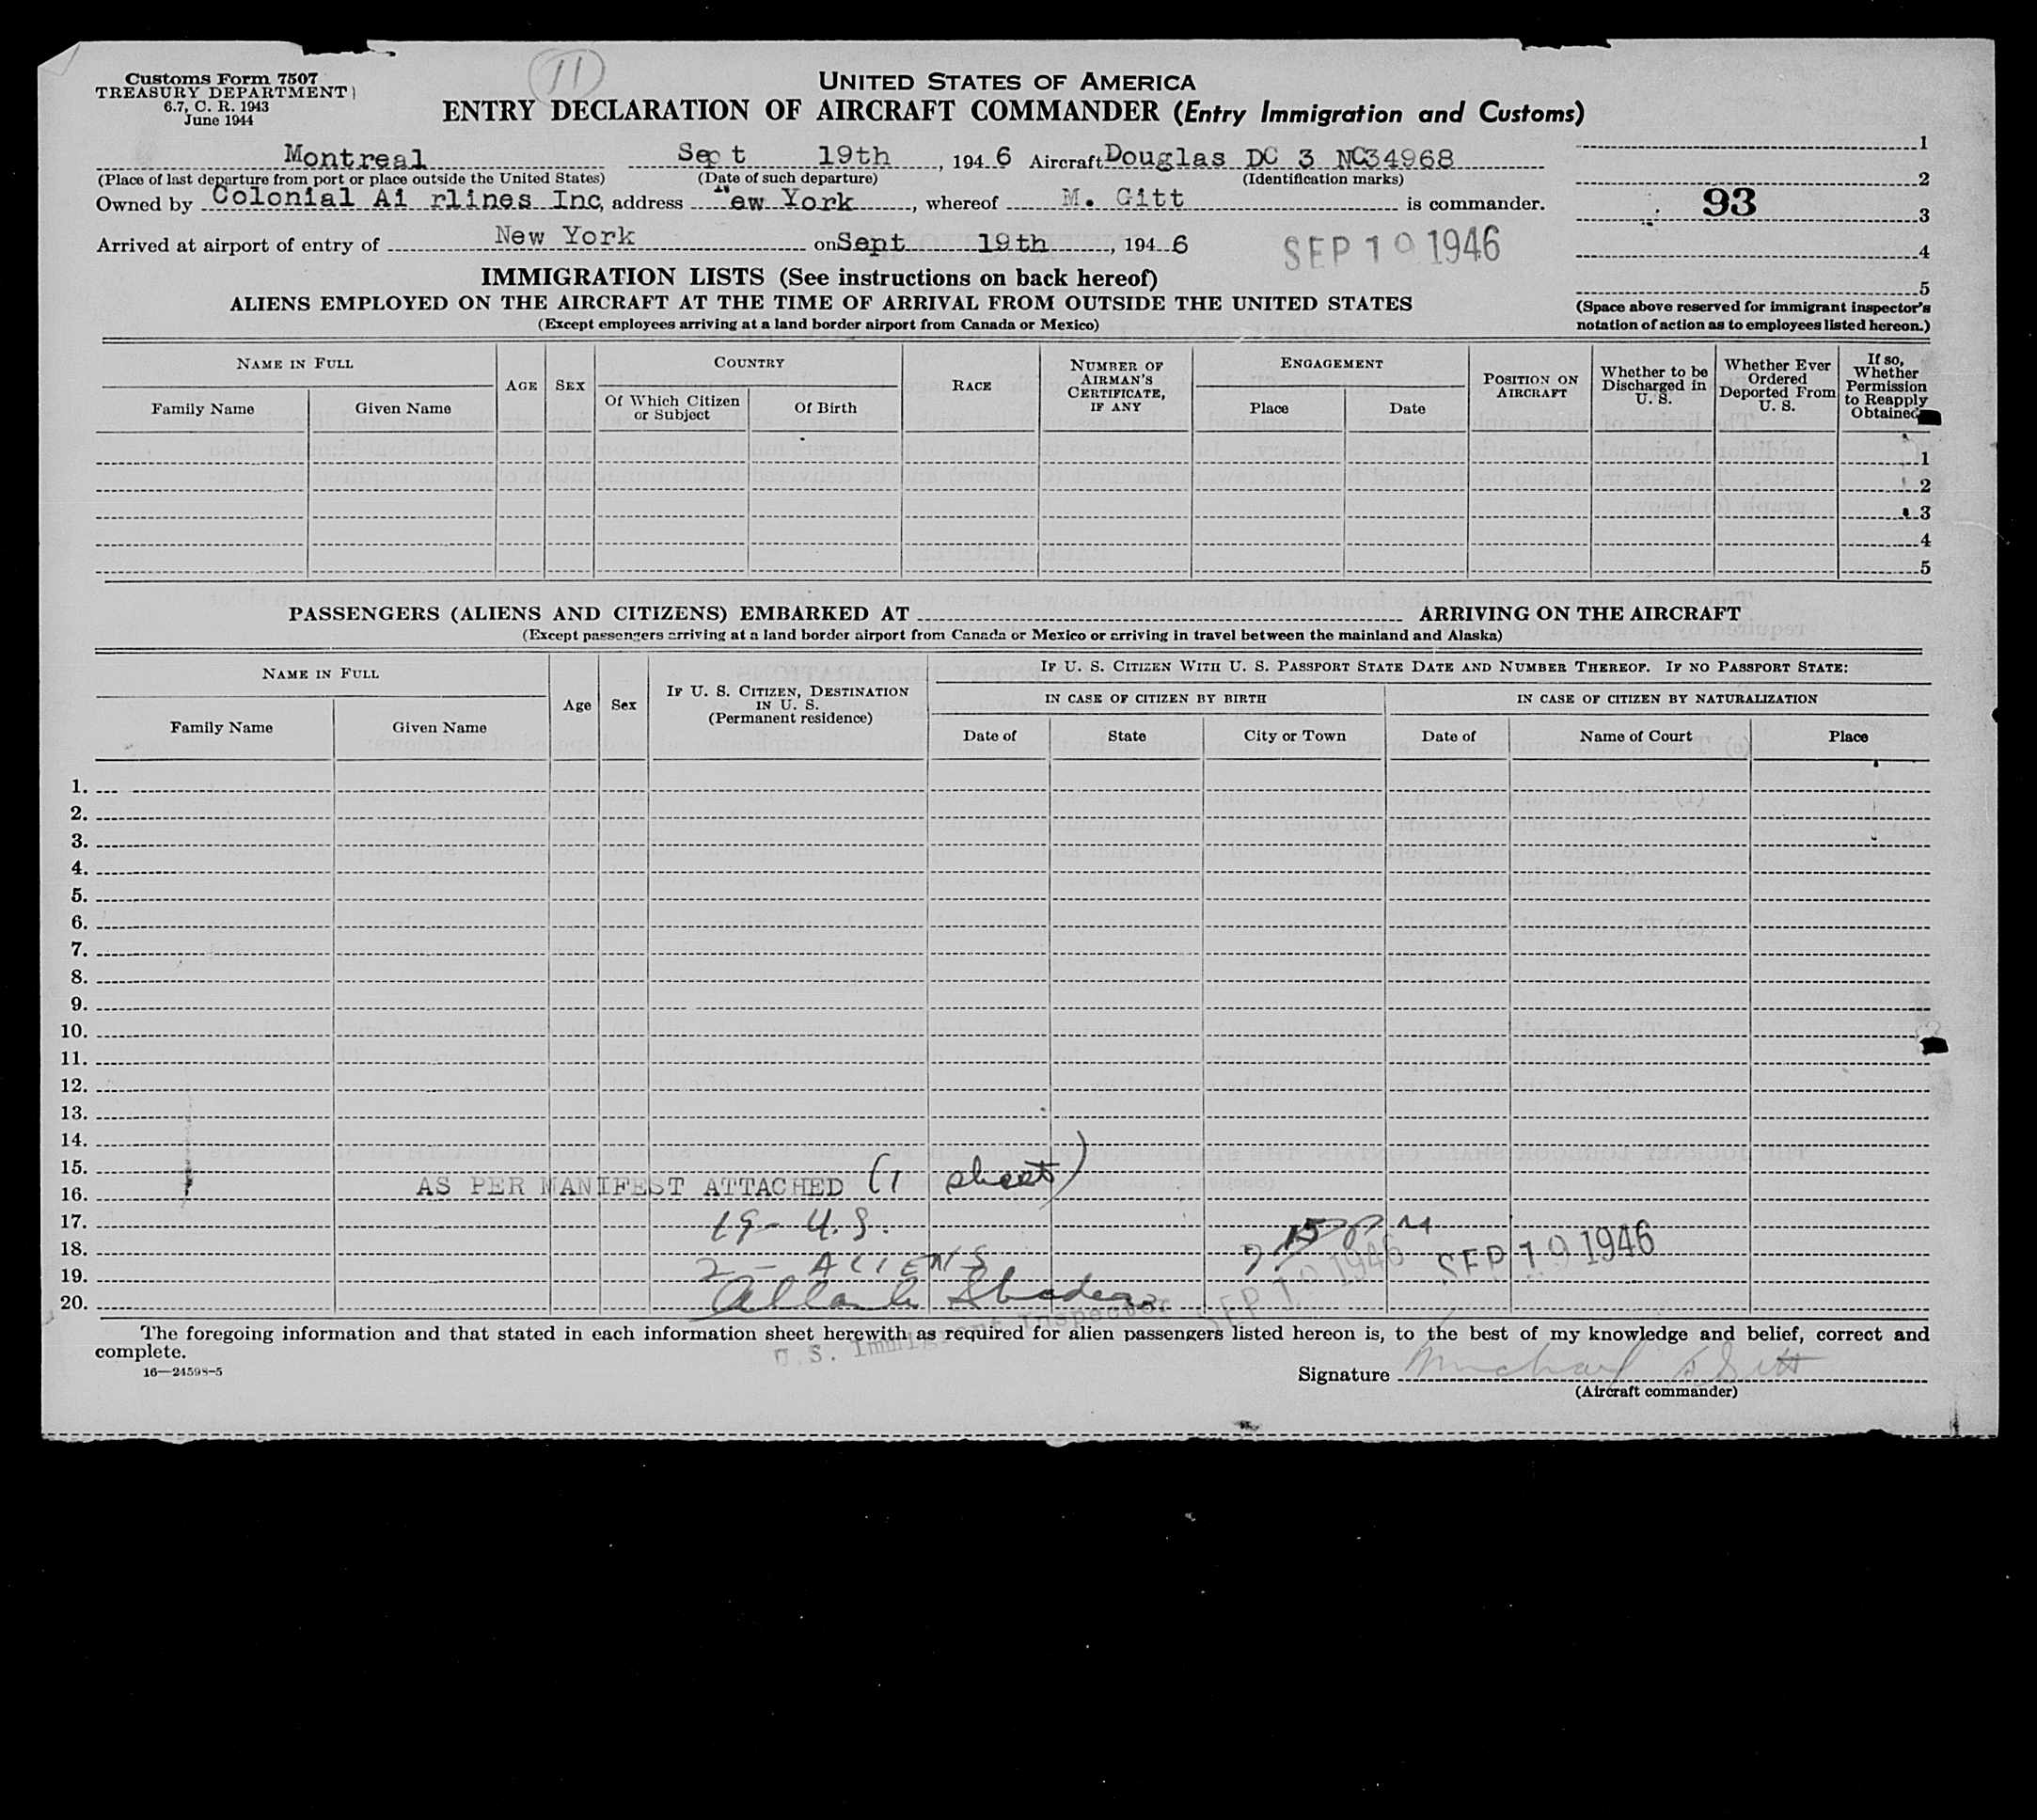 Customs Form 7507
TREASURY DEPARTMENT
6.7, C. R. 1943
June 1944
11
UNITED STATES OF AMERICA
ENTRY DECLARATION OF AIRCRAFT COMMANDER (Entry Immigration and Customs)
Montreal Sept 19th, 1946 Aircraft Douglas DC 3 NC34968
(Place of last departure from port or place outside the United States) (Date of such departure) (Identification marks)
Owned by Colonial Ai rlines Inc, address New York, whereof M. Gitt is commander.
Arrived at airport of entry of New York on Sept 19th, 1946
SEP 19 1946
1
2
93
3
4
5
(Space above reserved for immigrant inspector's notation of action as to employees listed hereon.)
IMMIGRATION LISTS (See instructions on back hereof)
ALIENS EMPLOYED ON THE AIRCRAFT AT THE TIME OF ARRIVAL FROM OUTSIDE THE UNITED STATES
(Except employees arriving at a land border airport from Canada or Mexico)
NAME IN FULL
Family Name Given Name
AGE SEX
COUNTRY
Of Which Citizen or Subject Of Birth
RACE
NUMBER OF AIRMAN'S CERTIFICATE, IF ANY
ENGAGEMENT
Place Date
POSITION ON AIRCRAFT
Whether to be Discharged in U. S.
Whether Ever Ordered Deported From U. S.
If so, Whether Permission to Reapply Obtained
1
2
3
4
5
PASSENGERS (ALIENS AND CITIZENS) EMBARKED AT ARRIVING ON THE AIRCRAFT
(Except passengers arriving at a land border airport from Canada or Mexico or arriving in travel between the mainland and Alaska)
NAME IN FULL
Family Name Given Name
Age Sex
IF U. S. CITIZEN, DESTINATION IN U. S. (Permanent residence)
IF U. S. CITIZEN WITH U. S. PASSPORT STATE DATE AND NUMBER THEREOF. IF NO PASSPORT STATE:
IN CASE OF CITIZEN BY BIRTH IN CASE OF CITIZEN BY NATURALIZATION
Date of State City or Town Date of Name of Court Place
1.
2.
3.
4.
5.
6.
7.
8.
9.
10.
11.
12.
13.
14.
15.
16. AS PER MANIFEST ATTACHED (1 sheet)
17. 19 - U.S.
18. SEP 19 1946
19. 2 - ALIENS SEP 19 1946
20.
U.S. Immigrant Inspector
The foregoing information and that stated in each information sheet herewith as required for alien passengers listed hereon is, to the best of my knowledge and belief, correct and
complete.
16—24598-5
Signature Michael Gitt
(Aircraft commander)